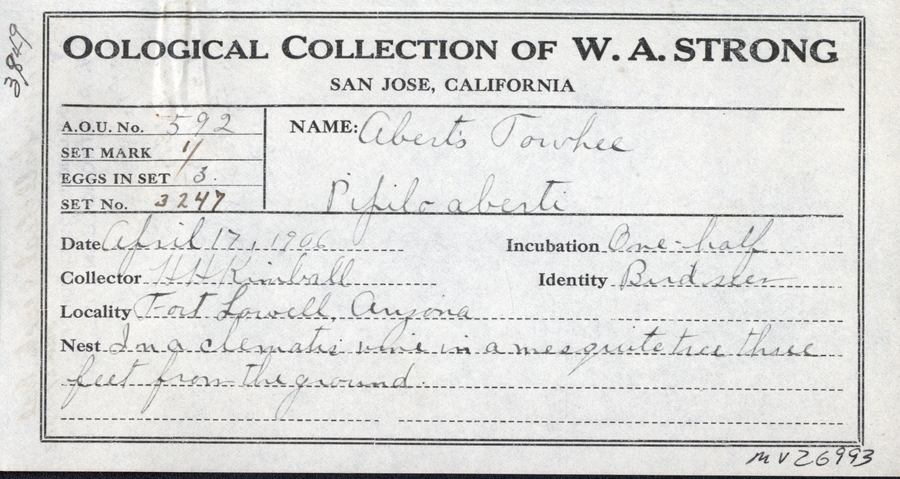 3849
OOLOGICAL COLLECTION OF W. A. STRONG
SAN JOSE, CALIFORNIA
A.O.U. No. 592
SET MARK 1/
EGGS IN SET 3.
SET No. 3247
NAME: Abert's Towhee
Pipilo aberti
Date April 17, 1906 Incubation One-half
Collector H H Kimball Identity Bird seen
Locality Fort Lowell, Arizona
Nest In a clematis vine in a mesquite tree three
feet from the ground.
MVZ6993